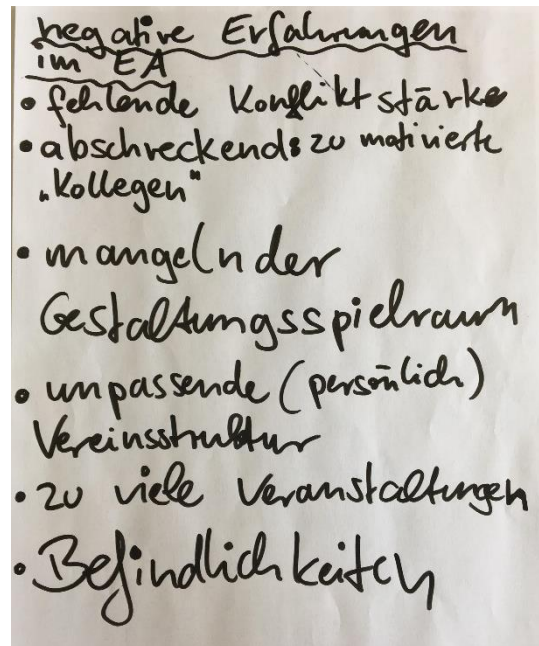 negative Erfahrungen
im EA
• fehlende Konfliktstärke
• abschreckend: zu motivierte
„Kollegen"
• mangelnder
Gestaltungsspielraum
• unpassende (persönlich)
Vereinsstruktur
• zu viele Veranstaltungen
• Befindlichkeiten